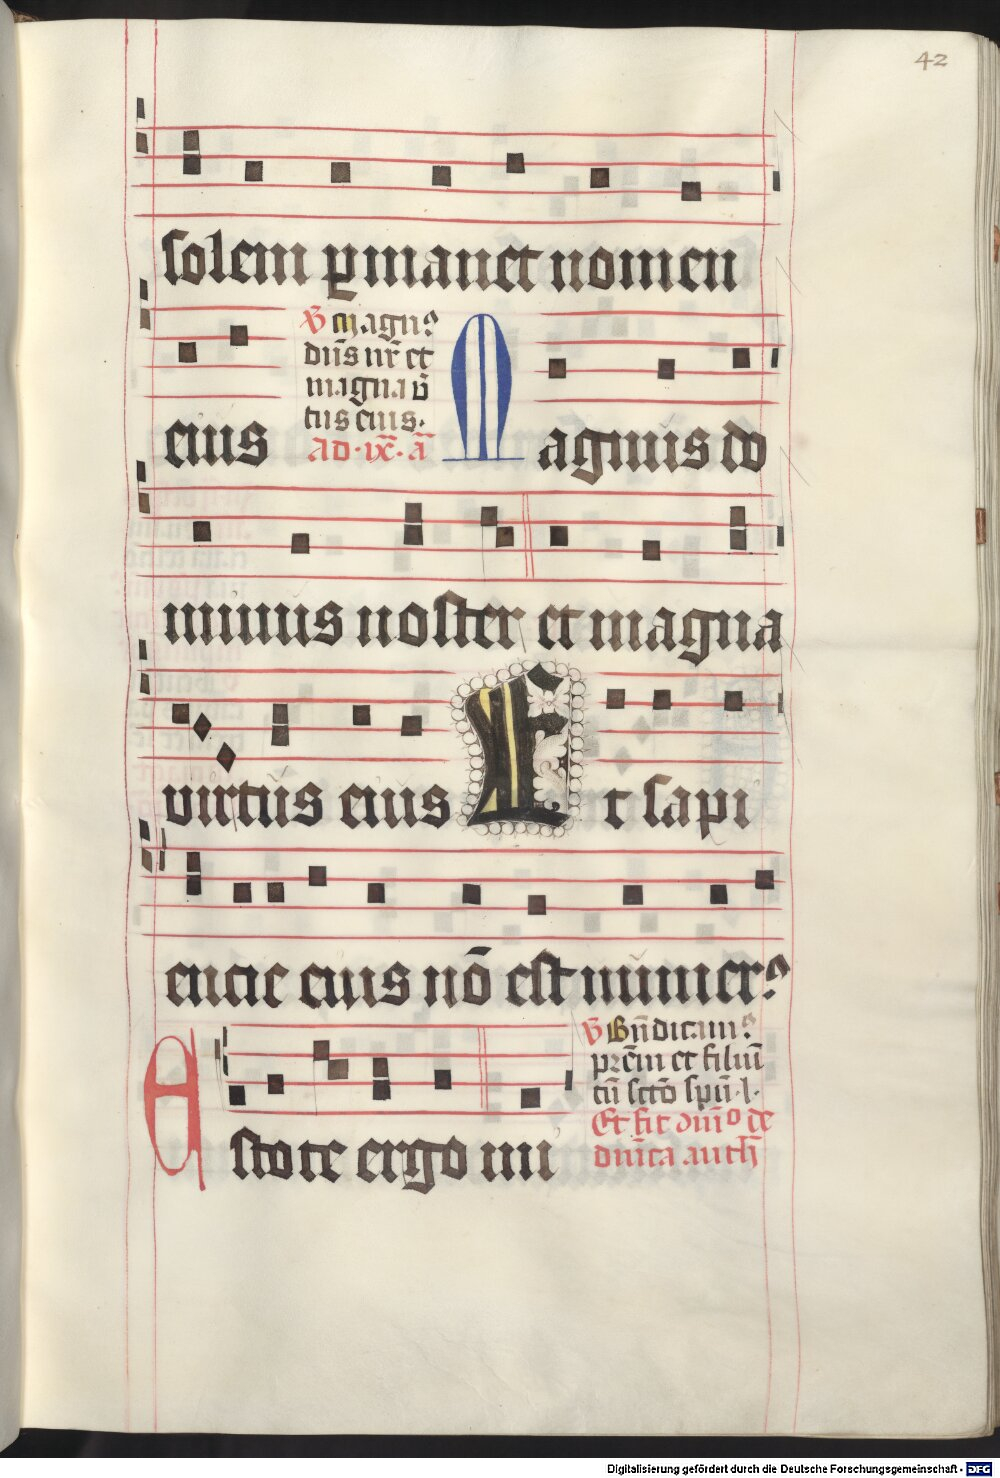 42
solem ꝑmanet nomen
℣ Magn⁹
dn̄s nr̄ et
magna v̄
tus eius.
Ad · ix · a͞
eius Magnus do
minus noster et magna
virtus eius Et sapi
encie eius nō est numer⁹
℣ Bn̄dicam⁹
prēm et filiū
cū sctō spū · l ·
Et fit dnīo de
dnīca auth̄
Astote ergo mi
Digitalisierung gefördert durch die Deutsche Forschungsgemeinschaft - DFG